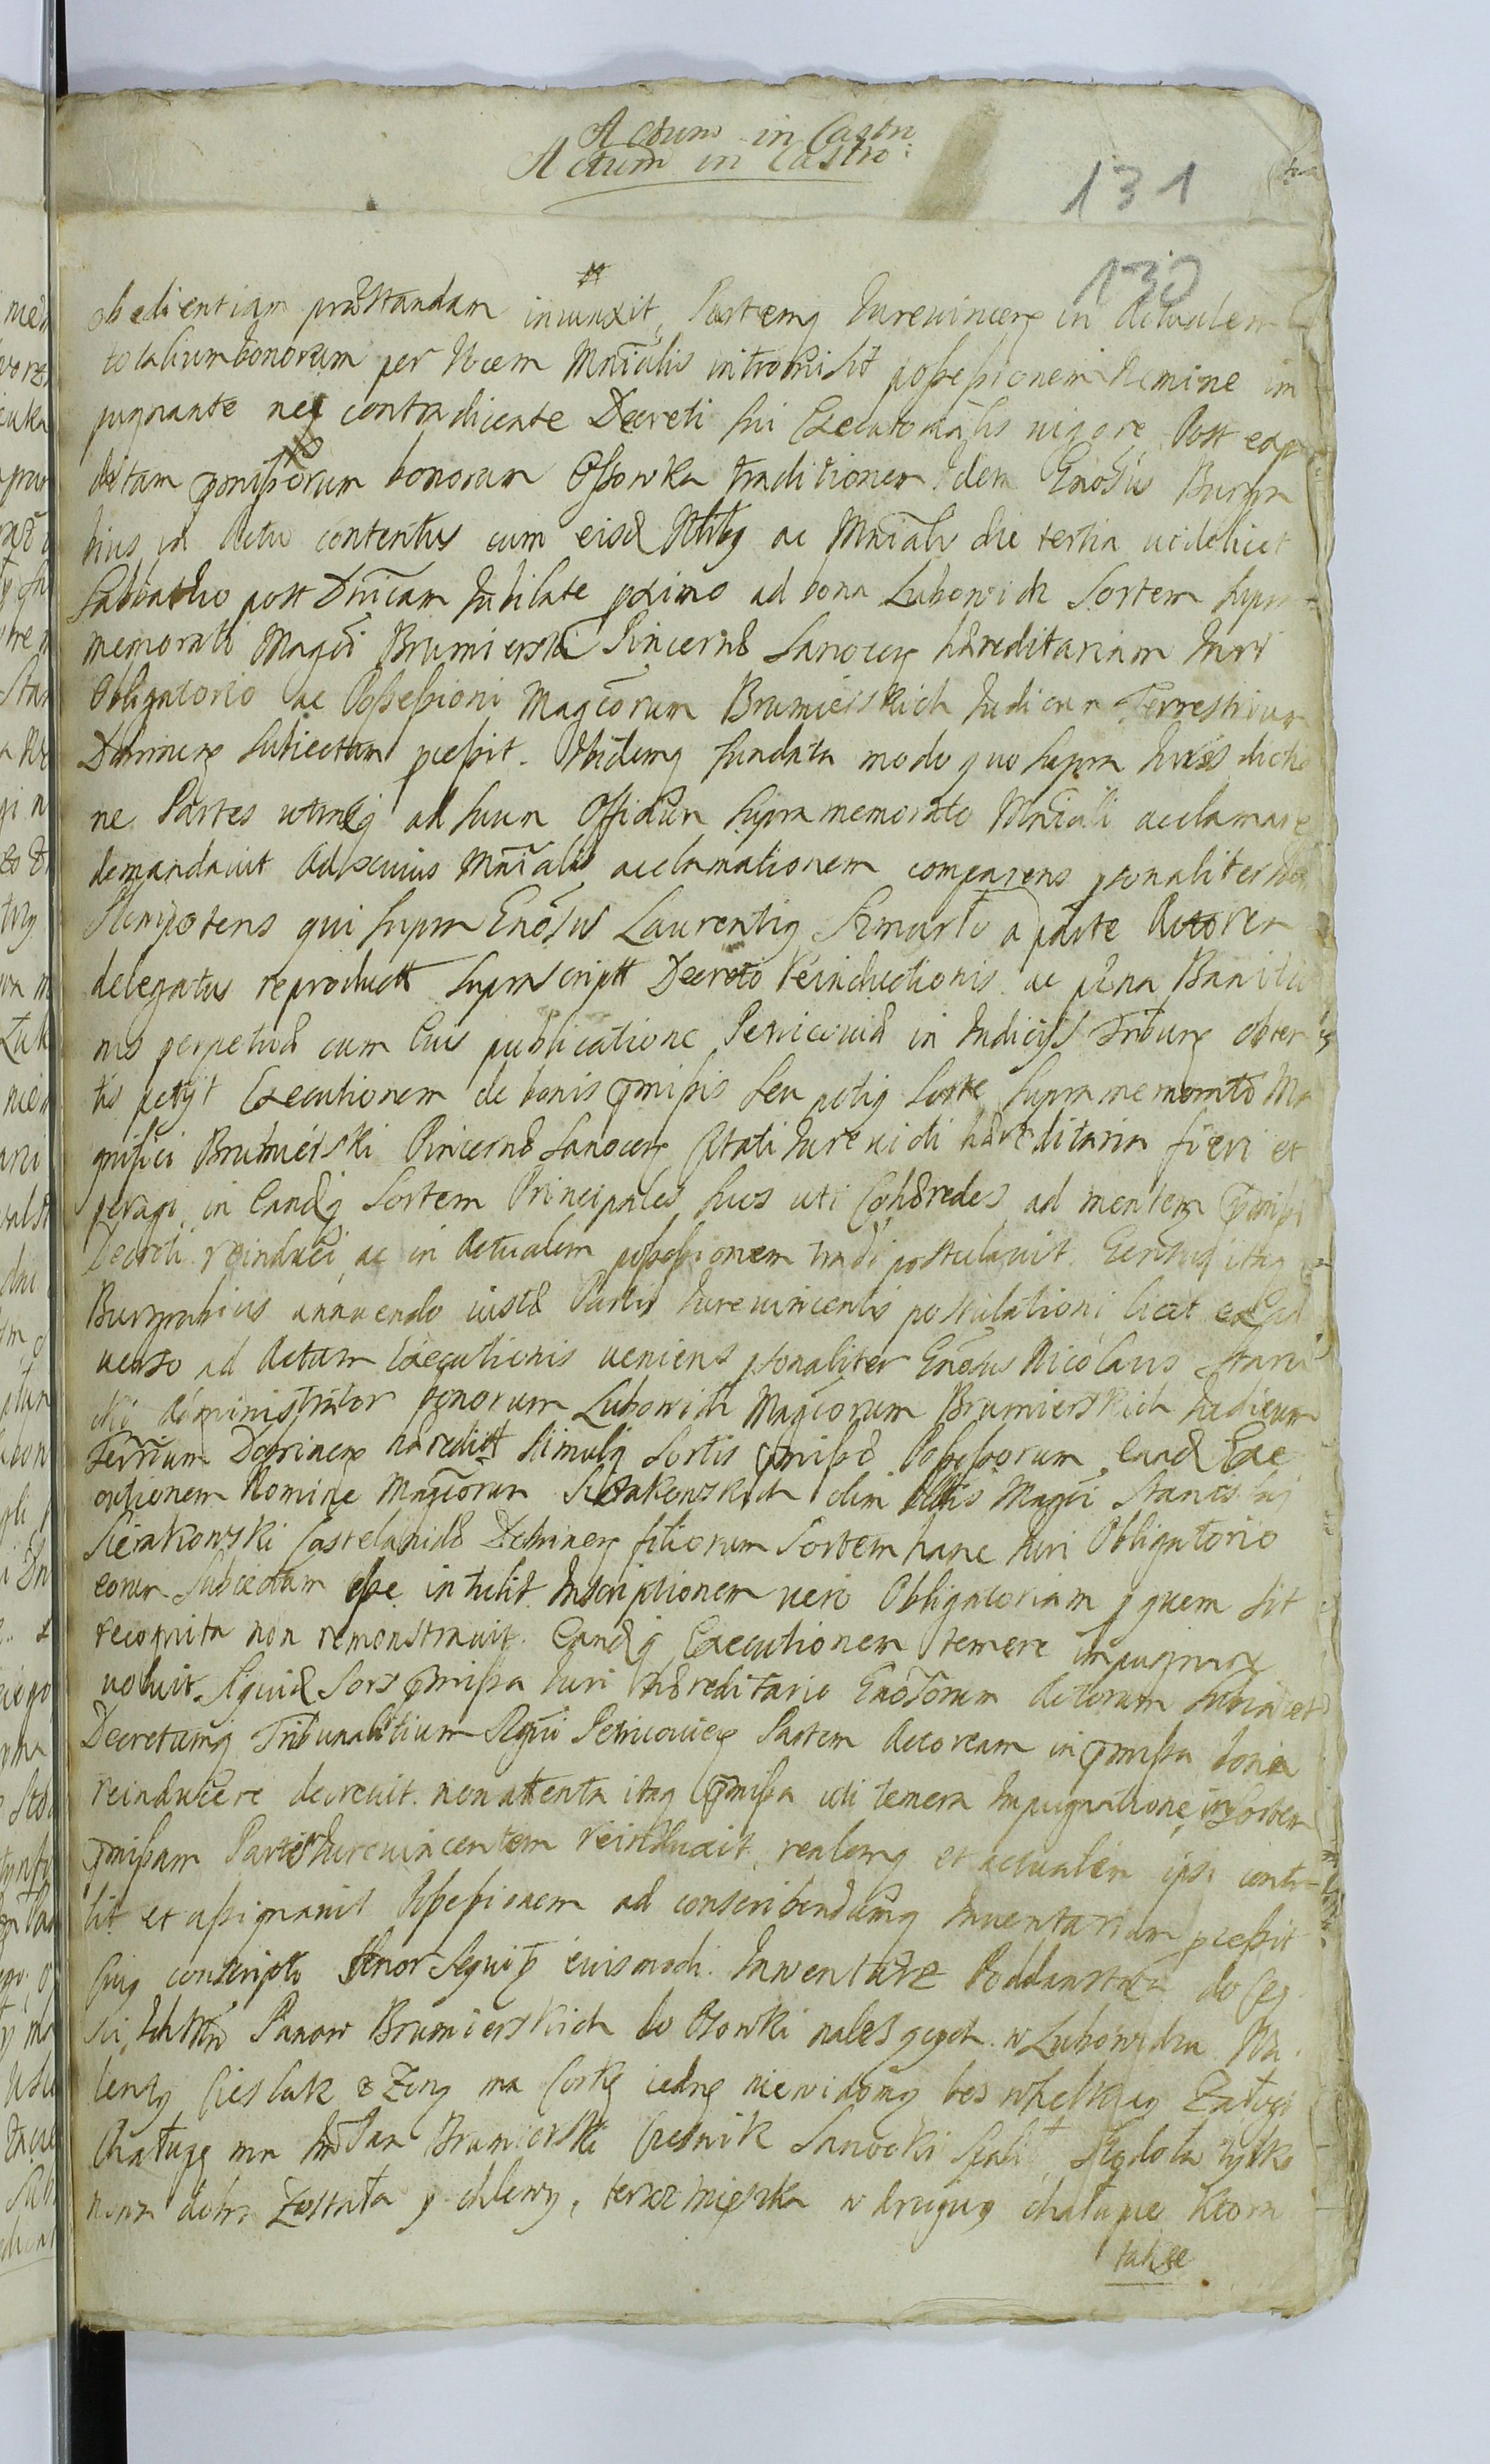 Actum in Castro
Actum in Castro:
131
130
obedientiam præstandam iniunxit, Partemq Iurevincen in Actualem
totalium bonorum per Vocem Mnialis intromisit possessionem Nemine im
pugnante neq contradicente Decreti sui Executorialis vigore. Post expe
ditam pmissorum bonorum Ossowka traditionem Idem Gnosus Burgra
bius in Actu contentus cum eisd Nblibq ac Mniali die tertia videlicet
Sabbatho post Dnicam Iubilate pximo ad bona Lubowidz Sortem supra
memorati Magci Brumierski Pincernæ Sanocen hæreditariam Iuri
Obligatorio ac Possessioni Magcorum Brumierskich Iudicum Terrestrium
Dobrinen subiectam pcessit. Ibidemq fundata modo quo supra Iurisdictio
ne Partes utrasq ad suum Officium supra memorato Mniali acclamare
demandavit Ad cuius Mnialis acclamationem comparens psonaliter
Plenipotens qui supra Gnosus Laurentiq a parte Actorea
delegatus reproductt suprascriptt Decreto Reinductionis ac pæna Banitio
nis perpetuæ cum Eius publicatione Petricoviæ in Iudicijs Tribun obten
tis petijt Executionem de bonis pmissis seu potiq Sorte supra memorato Ma
gnifici Brumierski Pincernæ Sanocen Citati Iurevicti hæreditaria fieri et
peragi, in Eandq Sortem Principales suos uti Cohæredes ad mentem pmissi
Decreti reinduci, ac in Actualem possessionem tradi postulavit. Gensus itaq
Burgrabius annuendo iustæ Partis Iurevincentis postulationi licet ex ad
verso ad Actum Executionis veniens psonaliter Gnosus Nicolaus
Administrator bonorum Lubowidz Magcorum Brumierskich Iudicum
Terrium Dobrinen hæreditt simulq Sortis pmissæ Possessorum, Eand Exe
cutionem Nomine Magcorum Sierakowskich olim Magci Stanislai
Sierakowski Castelanidæ Dobrinen filiorum Sortem hanc Iuri Obligatorio
eorum subiectam esse intulit Inscriptionem vero Obligatoriam p quem sit
recognita non remonstravit. Eandq Executionem temere impugnare
voluit. Siquid Sors pmissa Iuri hæreditario Gnosorum Actorum subiacet
Decretumq Tribunalitium Regni Petricovien Partem Actoream in pmissa bona
reinducere decrevit. non attenta itaq pmissa uti temera Impugnatione, in Sortem
pmissam Partem Iurevincentem reinduxit, realemq et actualem ipsi contu
lit et assignavit Possessionem ad conscribendumq Inventarium pcessit
cuiq conscripti tenor sequitr eiusmodi. Inwentarz Poddanstwa do Czę
sci Ich Mw Panow Brumierskich do Osowki nalezących w Lubowidzu Wa
lenty Cieslak z Zoną ma Corkę iedne niewidomą bes wszelkiey Załogi
Chałupę mu Im Pan Brumierski Czesnik Sanocki spalił, Stodoła tylko
nowa dobra Zostata y chlewy, teraz mięszka w drugiey chałupie Ktora
takze